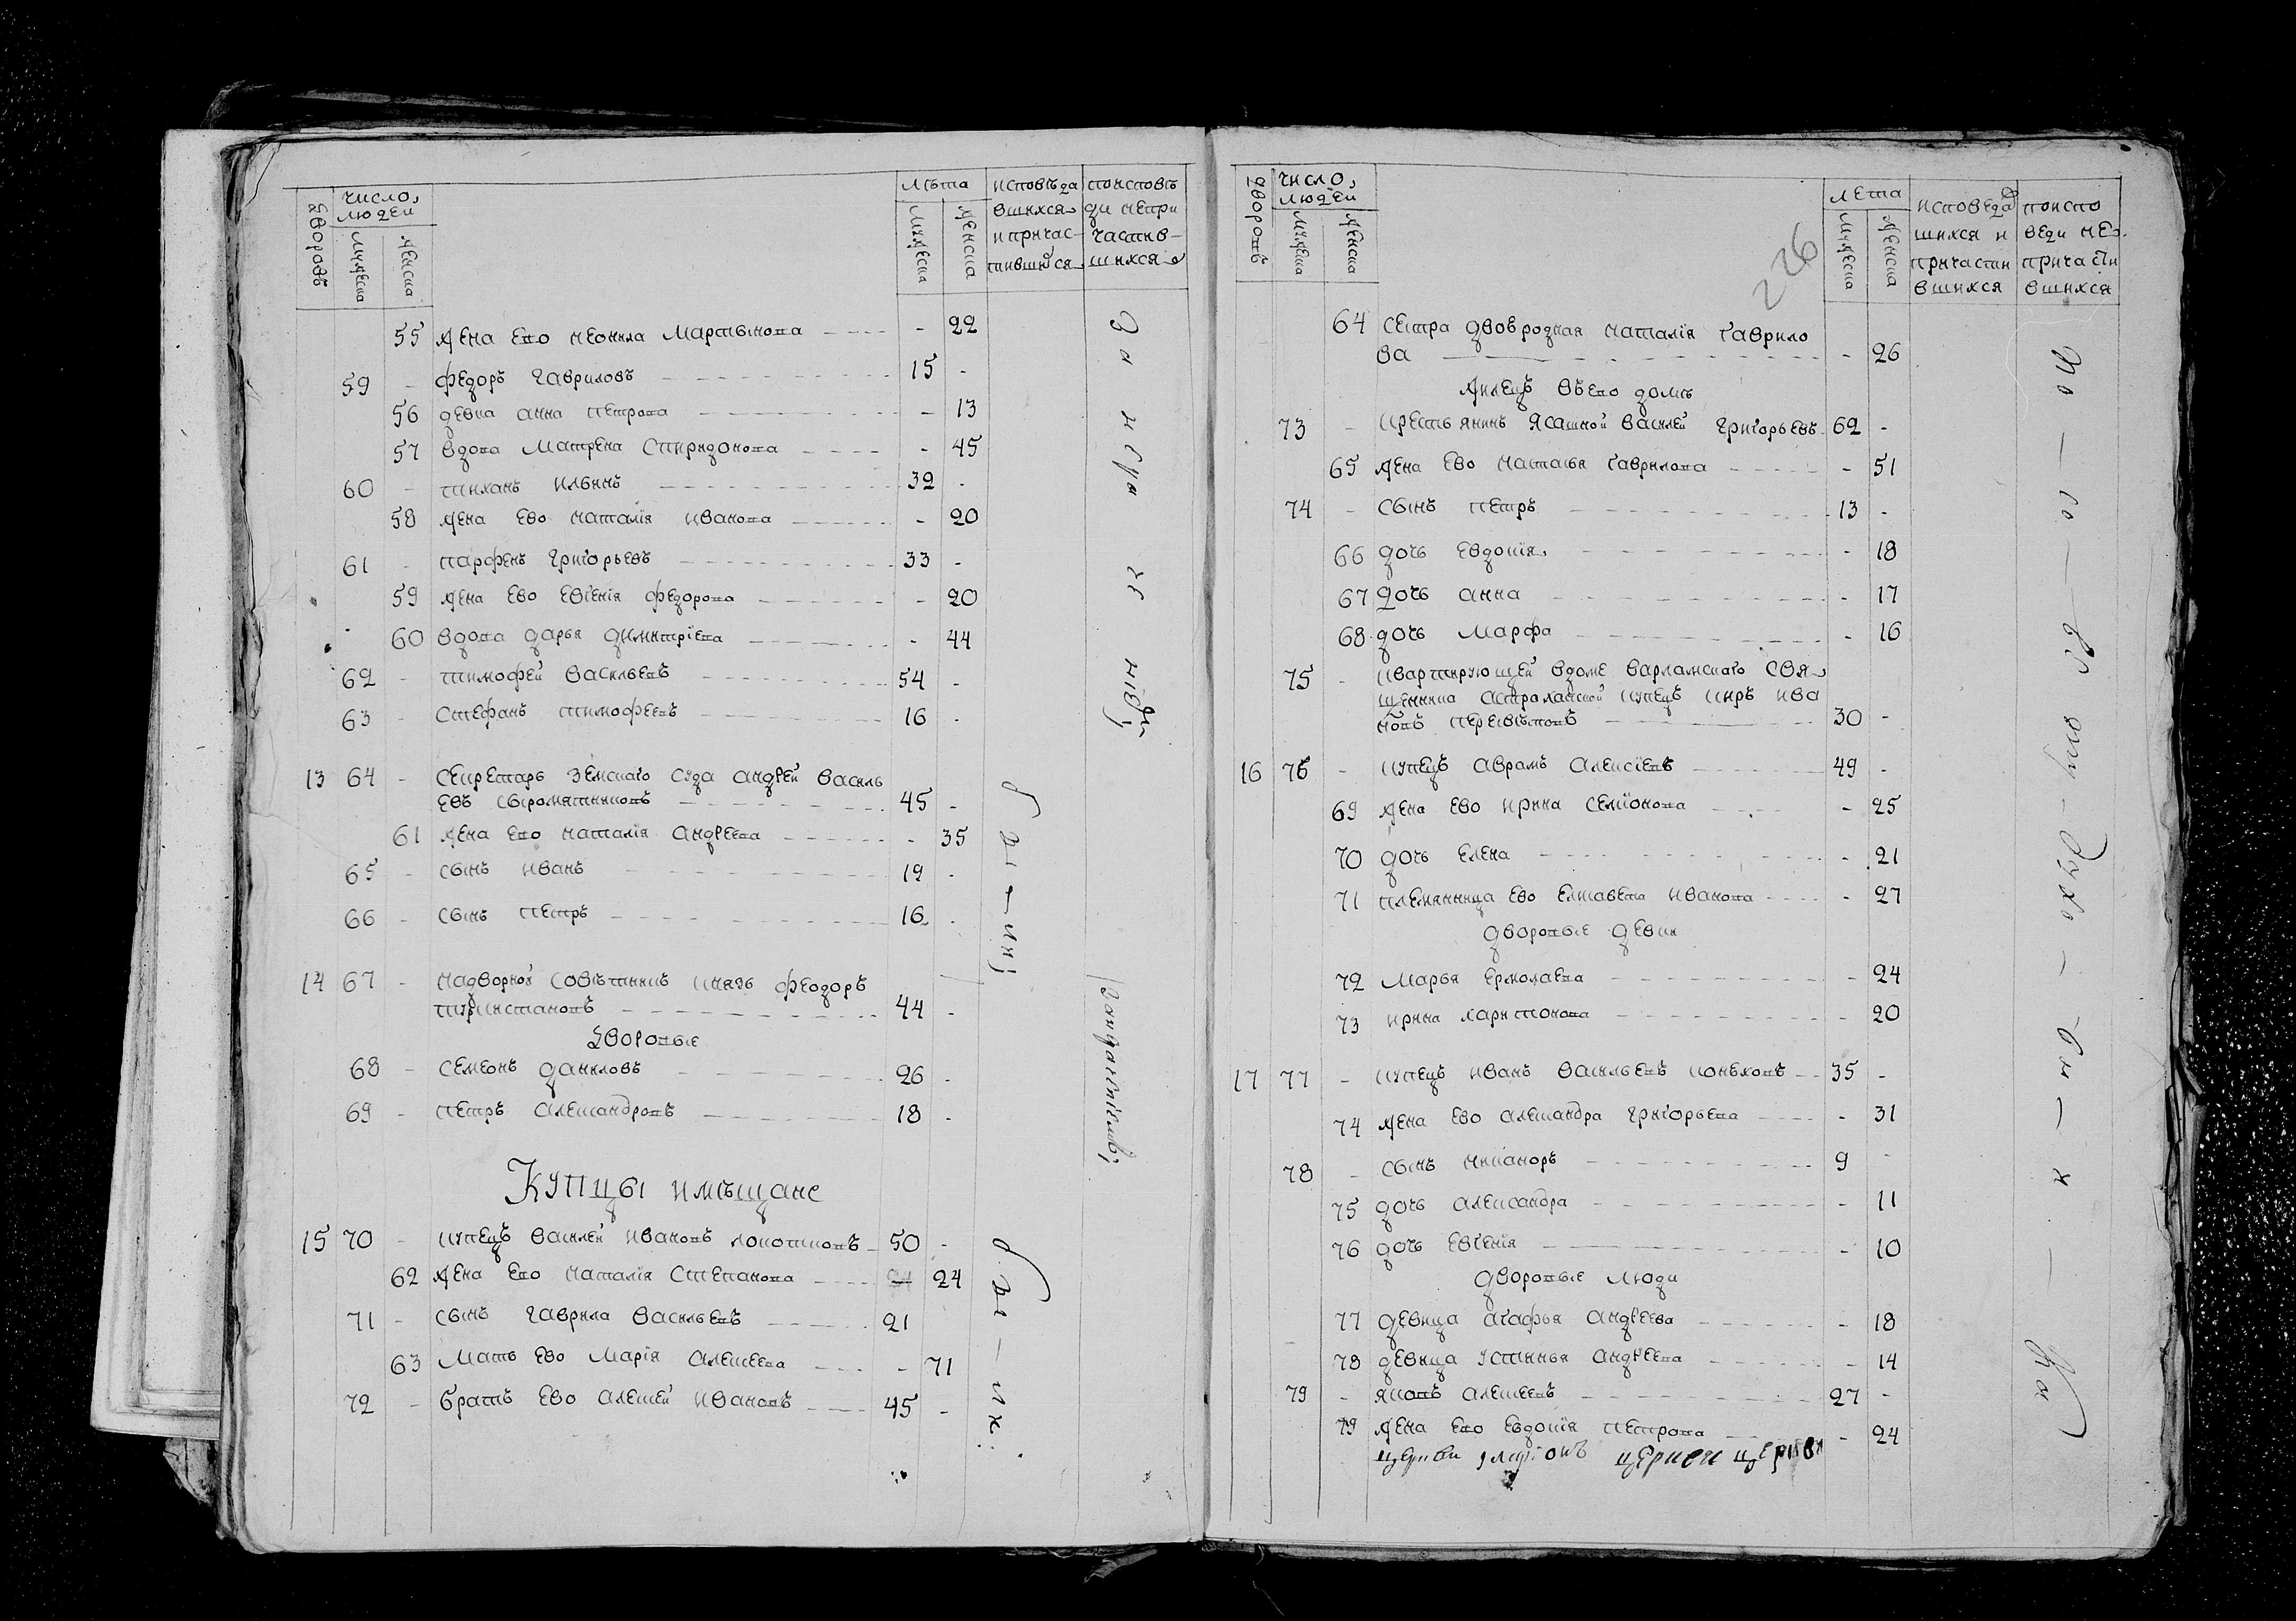 дворовъ
число людей
мужеска
женска
лѣта
мужеска
женска
исповѣда
вшихся
и причас-
тившихся
по исповѣ
ди непри
частив-
шихся
55 жена ево неонила Мартынова - 22
59 - федоръ гавриловъ 15 -
56 девка анна петрова - 13
57 вдова Матрена Спиридонова - 45
60 - тиханъ ильинъ 32 -
58 жена ево наталія иванова - 20
61 - парфенъ григорьевъ 33 -
59 жена ево евгенія федорова - 20
60 вдова дарья димитріева - 44
62 - тимофей васильевъ 54 -
63 - стефанъ тимофеевъ 16 -
13 64 - секретарь земскаго суда андрей василь
евъ сыромятниковъ 45 -
61 жена ево наталія андреева - 35
65 - сынъ иванъ 19 -
66 - сынъ петръ 16 -
14 67 - надворной совѣтникъ князь феодоръ
туркистановъ 44 -
дворовые
68 - семенъ даниловъ 26 -
69 - петръ александровъ 18 -
Купцы и мѣщане
15 70 - купецъ василей ивановъ локотковъ 50 -
62 жена ево наталія степанова 24
71 - сынъ гаврила васильевъ 21
63 мать ево Марія алексеева - 71
72 - братъ ево алексей ивановъ 45 -
за нерачениемъ
были
за отдалениемъ
были
226
дворовъ
число людей
мужеска
женска
лета
мужеска
женска
исповедав
шихся и
причасти
вшихся
по испо
веди не
причасти
вшихся
64 сестра двоврозная наталія гаврило
ва - 26
жилецъ въ ево домѣ
73 - крестьянинъ ясашной василей григорьевъ 62 -
65 жена ево наталья гаврилова - 51
74 - сынъ петръ 13 -
66 дочь евдокія - 18
67 дочь анна - 17
68 дочь марфа - 16
75 - квартирующей в доме варламскаго свя
щенника астраханской купецъ киръ ива
новъ перевѣтовъ 30 -
16 76 - купецъ аврамъ алексіевъ 49 -
69 жена ево ирина семіонова - 25
70 дочь елена - 21
71 племянница ево елисавета иванова - 27
дворовые девки
72 марья ермолаева - 24
73 ирина харитонова - 20
17 77 - купецъ иванъ васильевъ коневховъ 35 -
74 жена ево александра григорьева - 31
78 - сынъ никаноръ 9 -
75 дочь александра - 11
76 дочь евгенія - 10
дворовые люди
77 девица агафья андреева - 18
78 девица устинья андреева - 14
79 - яковъ алексеевъ 27 -
79 жена ево евдокія петрова - 24
церкви церкви церкви